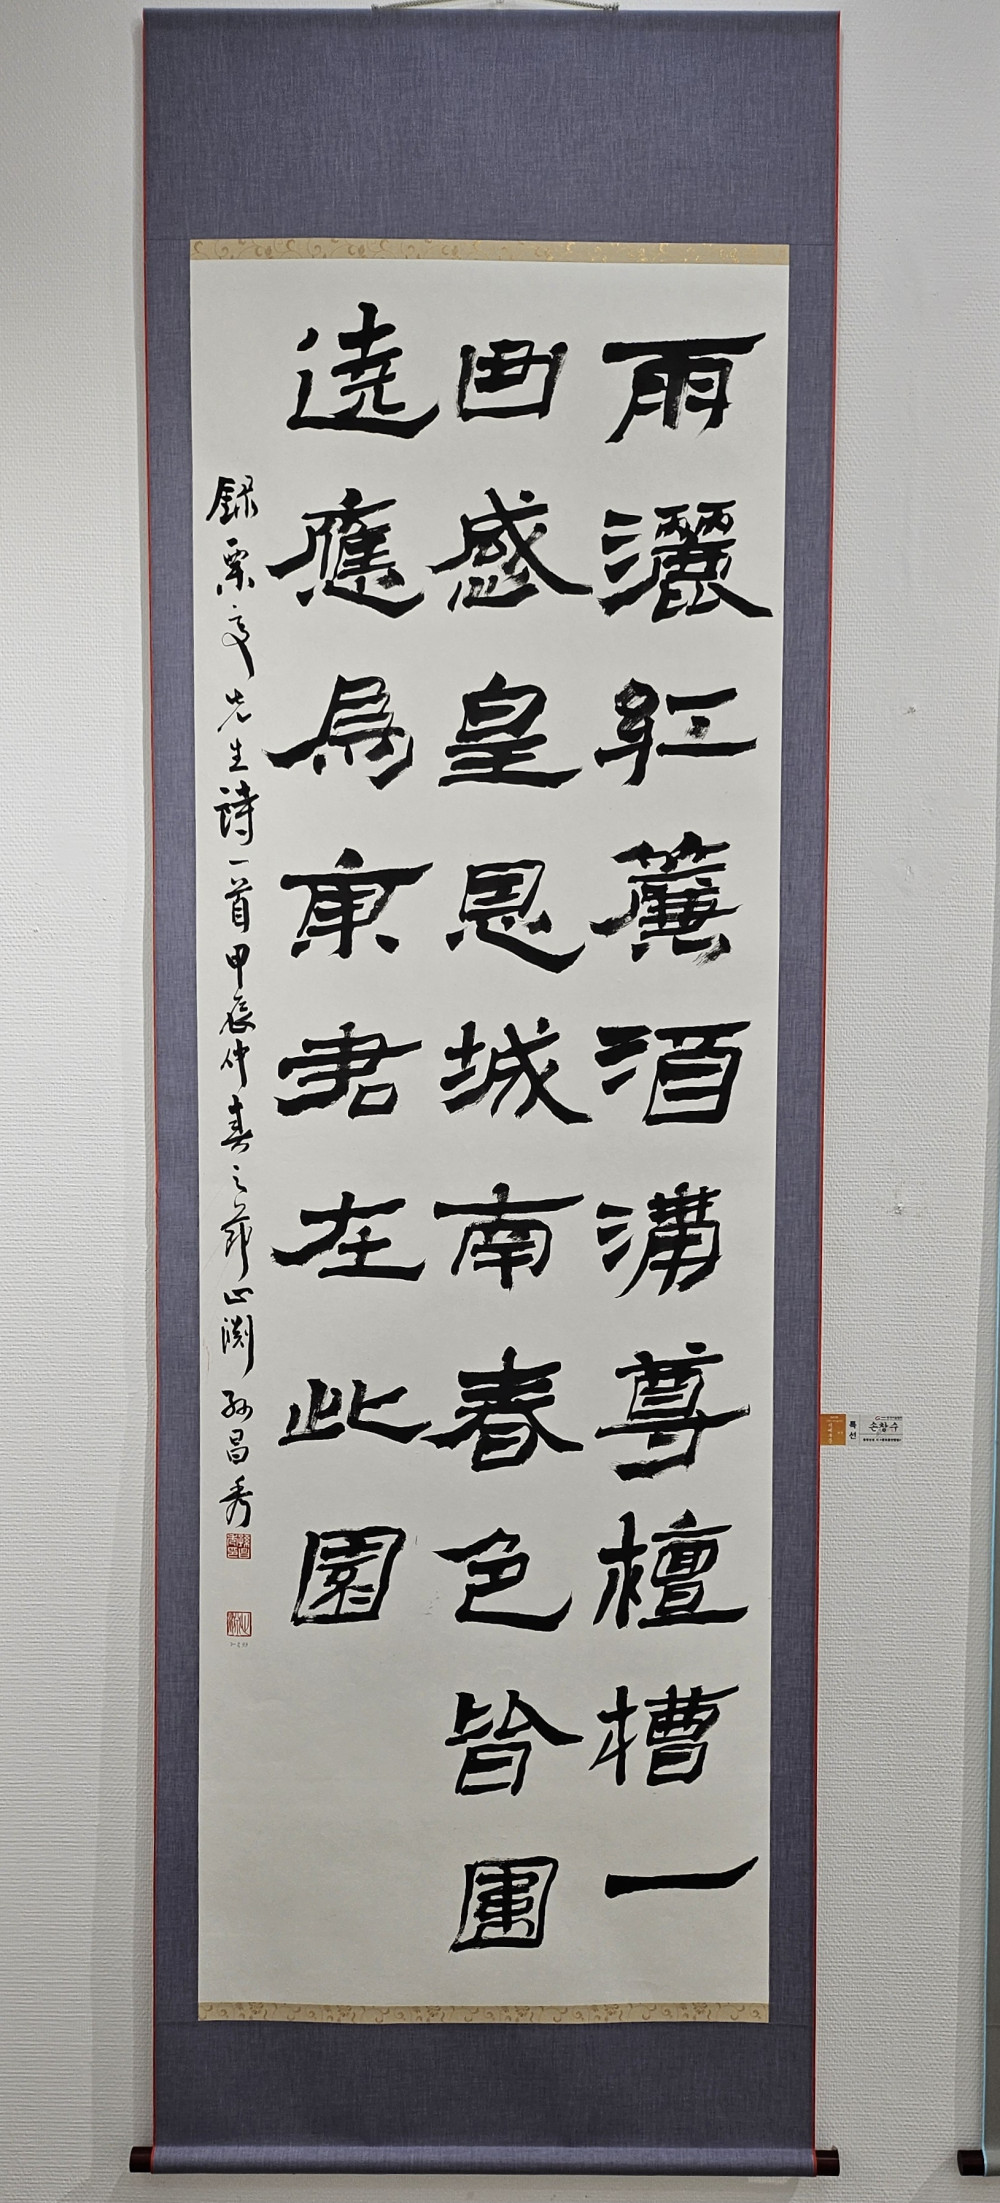 雨灑紅簾酒滿尊檀槽一
曲感皇恩城南春色皆圍
遶應爲東君在此園
錄栗亭先生詩一首甲辰仲春之節止淵孫昌秀
특선
손창수